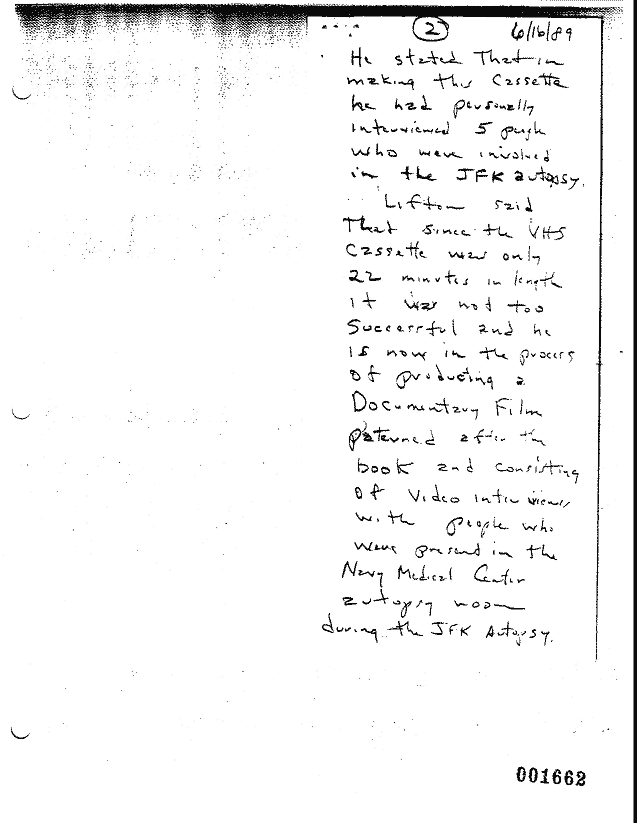 2 6/16/89
He stated That in
making this Cassette
he had personally
interviewed 5 people
who were involved
in the JFK autopsy.
Lifton said
That since the VHS
Cassette was only
22 minutes in length
it was not too
Successful and he
is now in the process
of producing a
Documentary Film
paterned after the
book and consisting
of Video interviews
with people who
were present in the
Navy Medical Center
autopsy room
during the JFK Autopsy.
001662